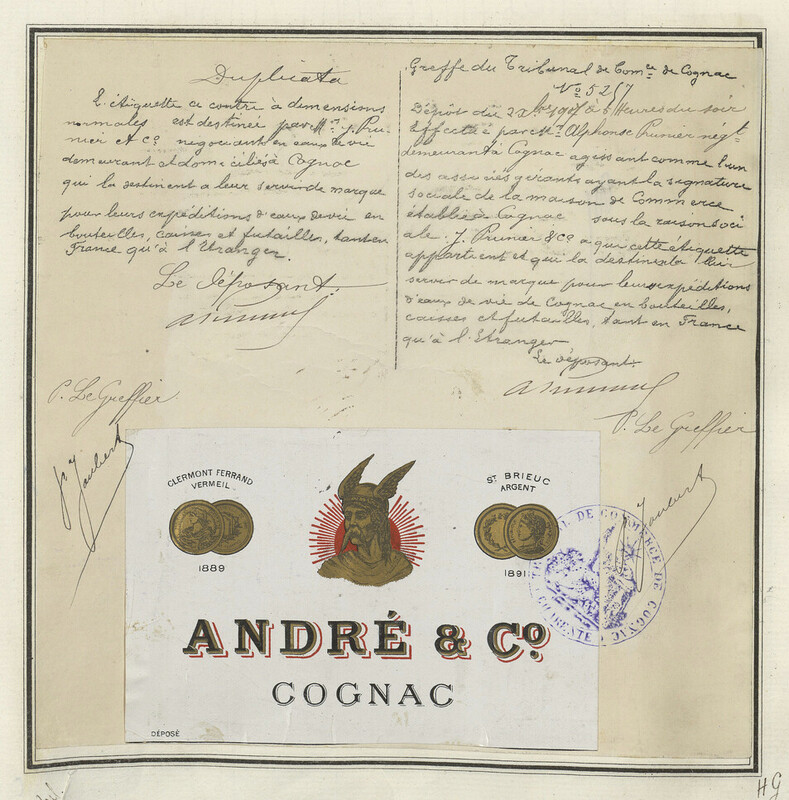 Duplicata
L'étiquette ci contre à dimensions
normales est destinée par Mr. J. Pru-
nier et Co. négociant en eaux de vie
demeurant et domiciliés à Cognac
qui la destinent a leur servir de marque
pour leurs expéditions d'eaux de vie en
bouteilles, caisses et futailles, tant en
France qu'à l'Etranger.
Le Déposant.
Greffe du Tribunal de Comce de Cognac
No 5267
Dépôt du 2 Xbre 1907 à 6 Heures du soir
Effectué par Mr. Alphonse Prunier négt
demeurant à Cognac agissant comme l'un
des associés gérants ayant la signature
sociale de la maison de Commerce
établie à Cognac sous la raison soci
ale. J. Prunier & Co a qui cette étiquette
appartient et qui la destine à leur
servir de marque pour leurs expéditions
d'eaux de vie de Cognac en bouteilles,
caisses et futailles, tant en France
qu'à l'Etranger
Le déposant.
P. Le Greffier
P. Le Greffier
Joubert
Joubert
CLERMONT FERRAND
VERMEIL
1889
ST BRIEUC
ARGENT
1891
TRIBUNAL DE COMMERCE DE COGNAC
(CHARENTE)
ANDRÉ & Co.
COGNAC
DÉPOSÉ
HG